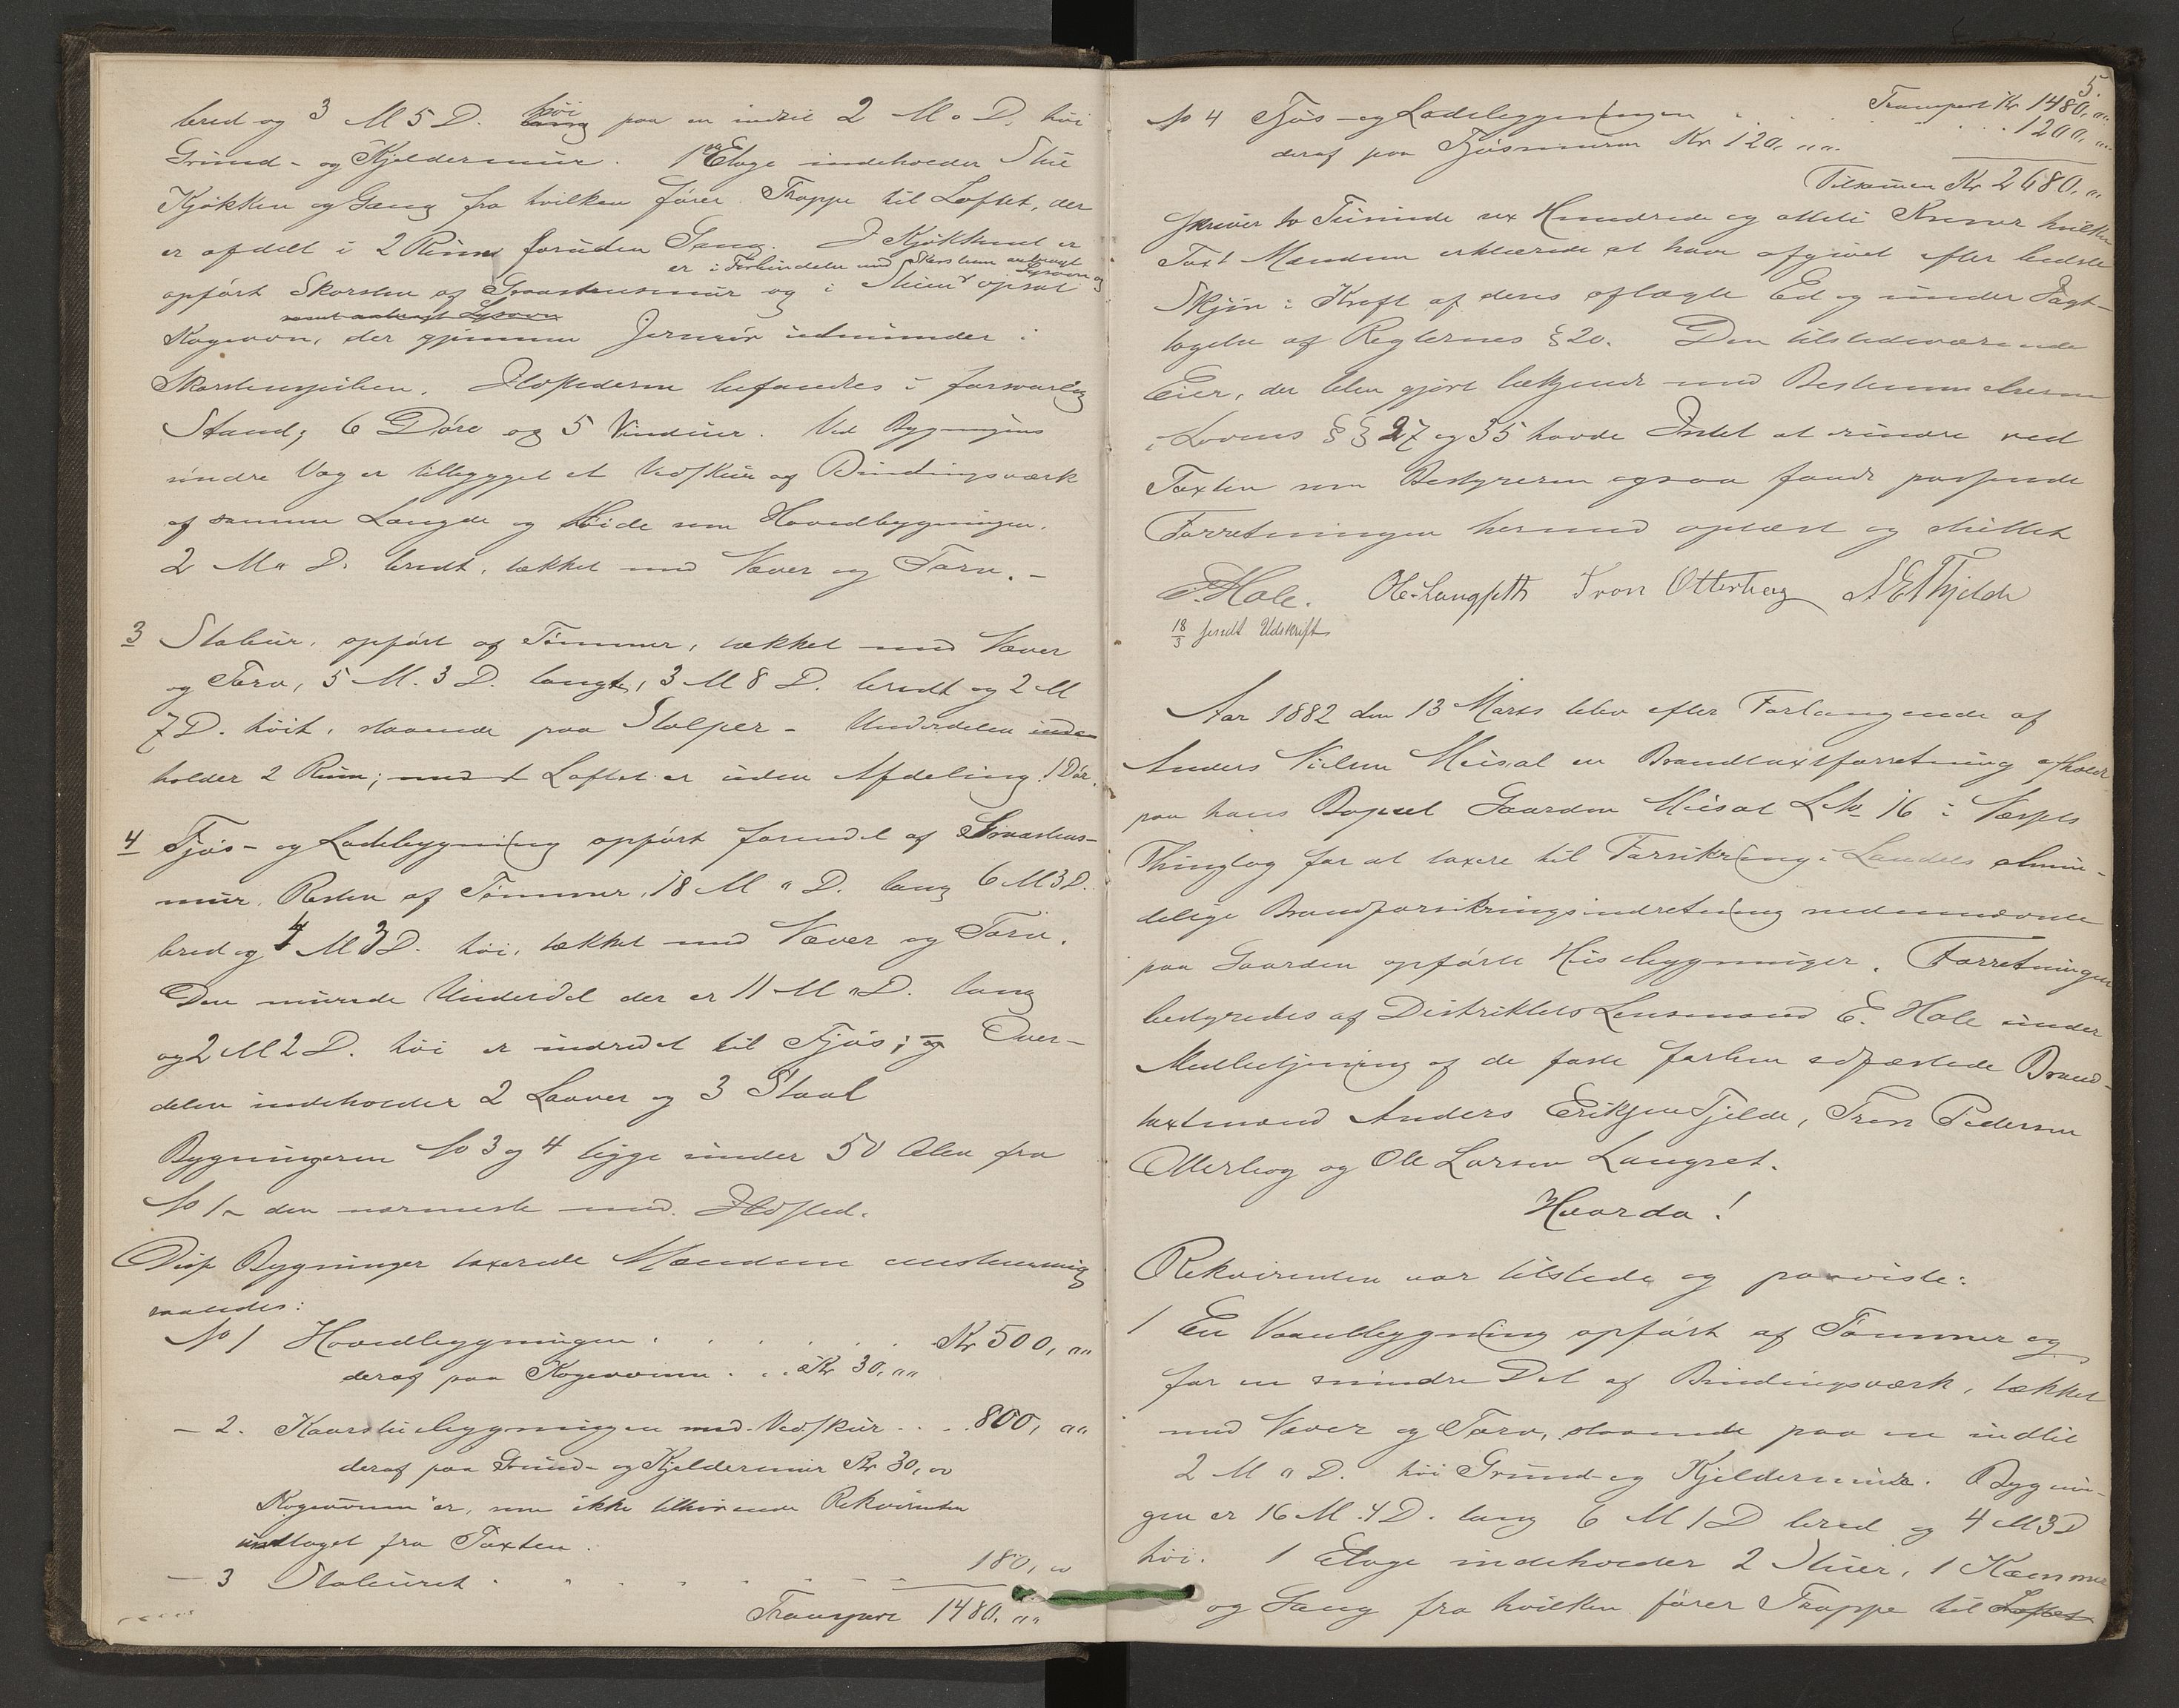 bred og 3 M 5 D. høi paa en indtil 2 M " D. høi
Grund- og Kjeldermur. 1ste Etage indeholder Stue
Kjøkken og Gang fra hvilken fører Trappe til Loftet, der
er afdelt i 2 Rum foruden Gang. I Kjøkkenet er
er i Forbindelse med Skorsten anbragt Lysovn og
opført Skorsten af Graasteensmur og i Stuen opsat
samt anbragt Lysovn
Kogeovn, der gjennem Jernrør udmunder i
Skorstenspiben. Ildstederne befandtes i forsvarlig
Stand; 6 Døre og 5 Vinduer. Ved Bygningens
nordre Væg er tilbygget et Vedskur af Bindingsværk
af samme Længde og Høide som Hovedbygningen.
2 M " D. bredt, tækket med Næver og Torv. -
3 Stabur, opført af Tømmer, tækket med Næver
og Torv, 5 M. 3 D. langt, 3 M 8 D. bredt og 2 M
7 D. høit, staaende paa Stolper - Underdelen inde-
holder 2 Rum; Loftet er uden Afdeling. 1 Dør.
4 Fjøs- og Ladebygning opført forendel af Graasteens-
mur, Resten af Tømmer, 18 M " D. lang 6 M 3 D.
bred og 4 M 3 D. høi, tækket med Næver og Torv.
Den murede Underdel der er 11 M " D. lang
og 2 M 2 D. høi er indredet til Fjøs; og Over-
delen indeholder 2 Laaver og 3 Staal
Bygningerne No 3 og 4 ligge under 50 Alen fra
No 1 - den nærmeste med Ildsted.
Disse Bygninger taxerede Mændene eenstemmig
saaledes:
No 1 Hovedbygningen . . . . . . Kr 500, ""
deraf paa Kogeovnen . . . Kr 30, ""
- 2. Kaarstuebygningen med Vedskur . . . 800, ""
deraf paa Grund- og Kjeldermur Kr 30, ""
Kogeovnen er, som ikke tilhørende Rekvirenten
undtaget fra Taxten.
- 3 Staburet . . . . . . . 180, ""
Transport 1480, ""
5.
Transport Kr 1480, ""
No 4 Fjøs- og Ladebygningen . . . . . 1200, ""
deraf paa Fjøsmuren Kr 120, ""
Tilsammen Kr 2680, ""
skriver to Tusinde sex Hundrede og otteti Kroner hvilken
Taxt Mændene erklærede at have afgivet efter bedste
Skjøn i Kraft af deres aflagte Ed og under Iagt-
tagelse af Reglernes § 20. Den tilstedeværende
Eier, der blev gjort bekjendt med Bestemmelserne
i Lovens §§ 27 og 35 havde Intet at erindre ved
Taxten som Bestyreren ogsaa fandt passende
Forretningen hermed oplæst og sluttet
E. Hole. Ole Langseth Tron Otterbeg A E Thjelde
18/3 sendt Udskrift
Aar 1882 den 13 Marts blev efter Forlangende af
Anders Nilsen Misal en Brandtaxtforretning afholdt
paa hans Bopæl Gaarden Misal L No 16 i
Thinglag for at taxere til Forsikring i Landets almin-
delige Brandforsikringsindretning nedennævnte
paa Gaarden opførte Husebygninger. Forretningen
bestyredes af Distriktets Lensmand E. Hole under
Medbetjening af de faste forhen edfæstede Brand-
taxtmænd Anders Eriksen Tjelde, Tron Pedersen
Otterbeg og Ole Larsen Langset.
Hvorda!
Rekvirenten var tilstede og paaviste:
1 En Vaanebygning opført af Tømmer og
for en mindre Del af Bindingsværk, tækket
med Næver og Torv, staaende paa en indtil
2 M " D. høi Grund- og Kjeldermur. Bygnin-
gen er 16 M 4 D. lang 6 M 1 D bred og 4 M 3 D
høi. 1 Etage indeholder 2 Stuer, 1 Kammer
og Gang fra hvilken fører Trappe til Loftet